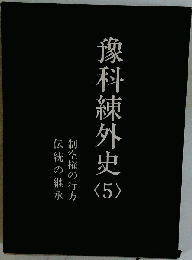 豫科練外史
〈5〉
制空権の行方
伝統の継承